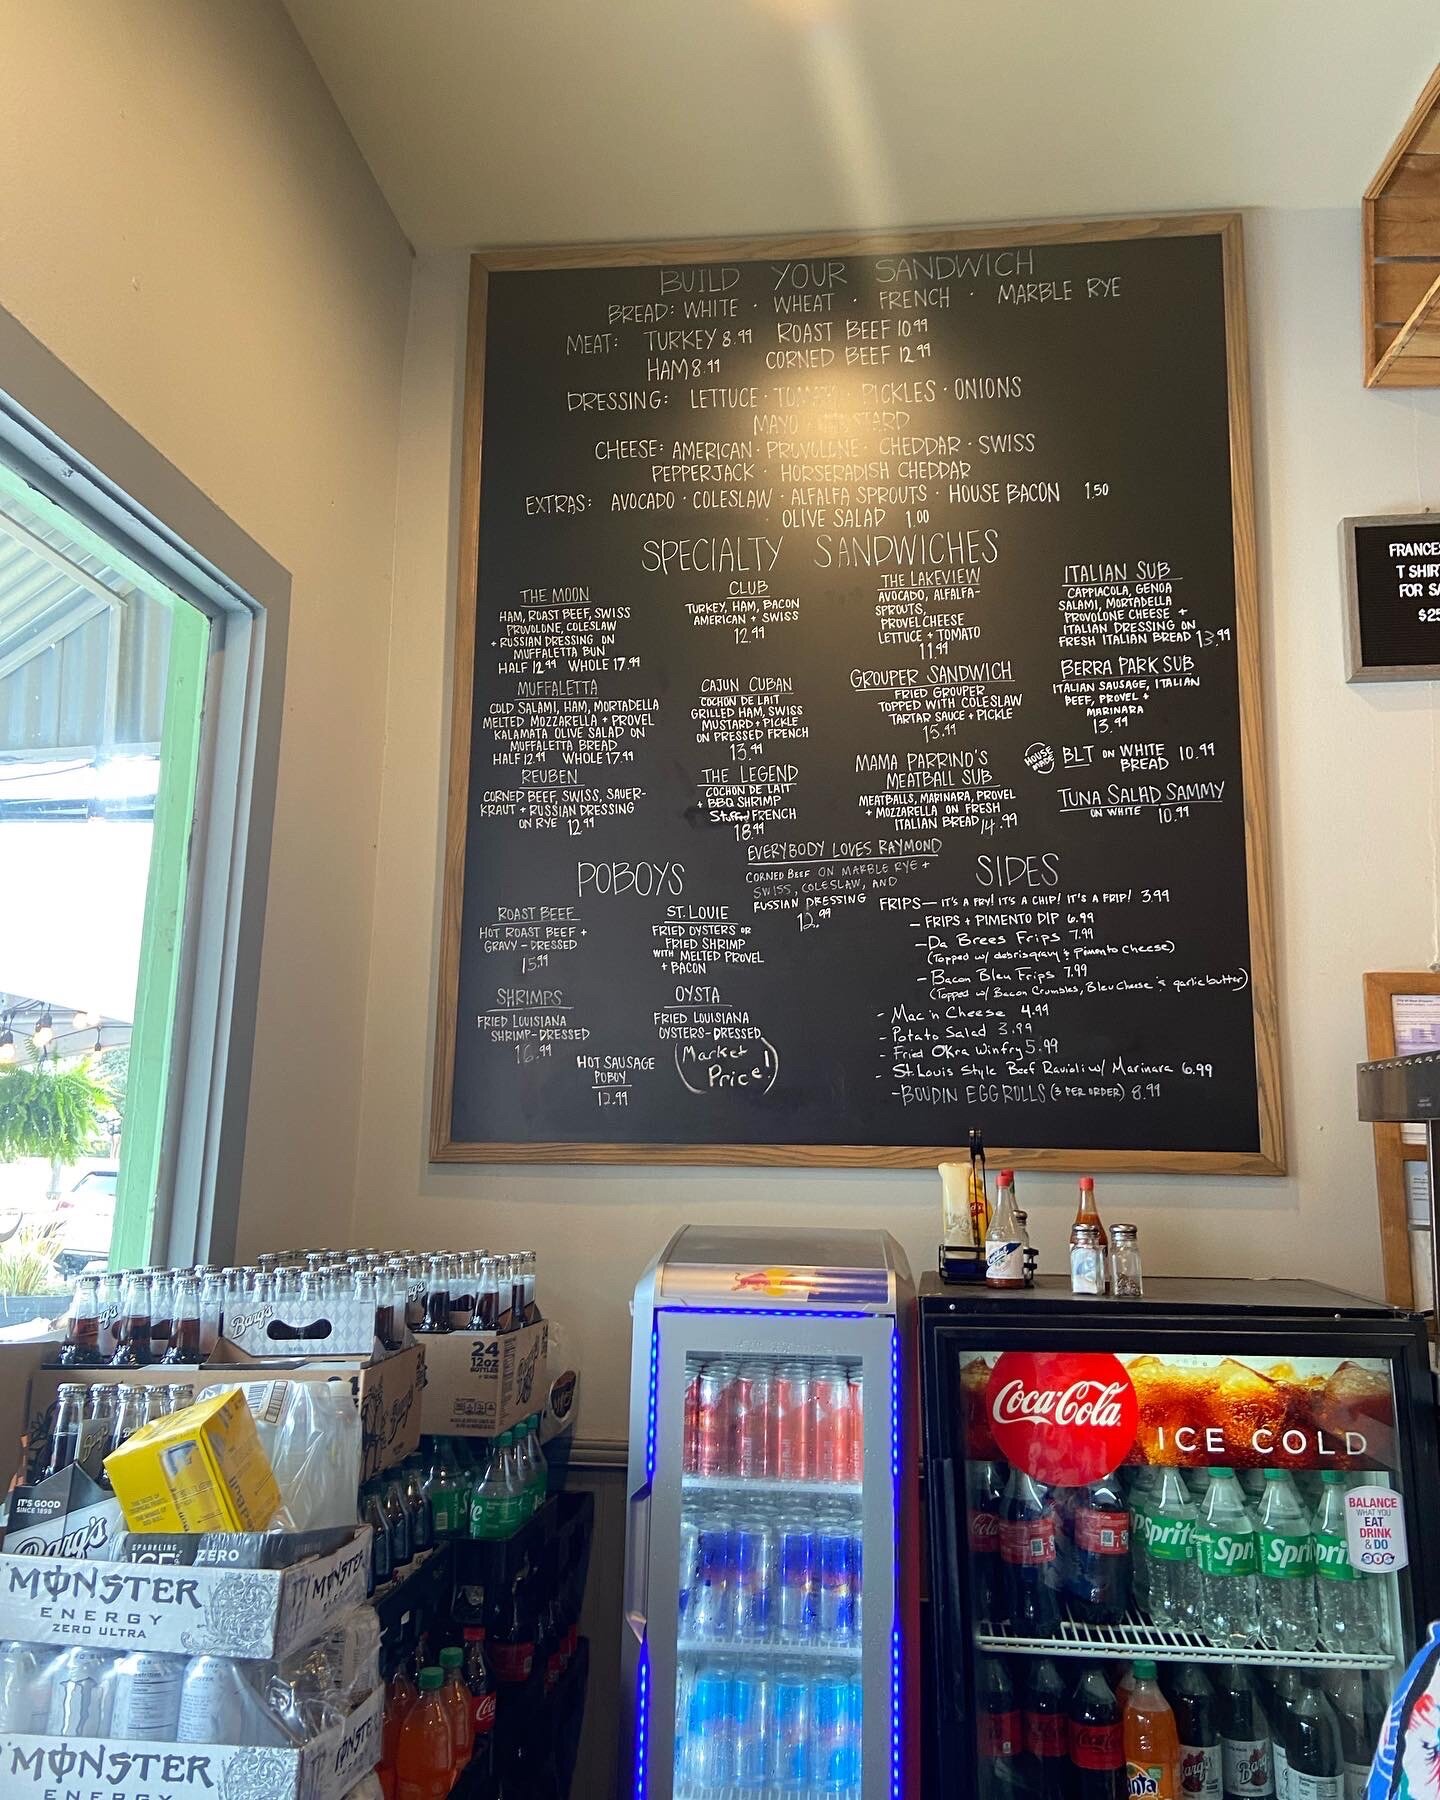 BUILD YOUR SANDWICH
BREAD: WHITE · WHEAT · FRENCH · MARBLE RYE
MEAT: TURKEY 8.99 ROAST BEEF 10.99
HAM 8.99 CORNED BEEF 12.99
DRESSING: LETTUCE · TOMATO · PICKLES · ONIONS
MAYO MUSTARD
CHEESE: AMERICAN · PROVOLONE · CHEDDAR · SWISS
PEPPERJACK · HORSERADISH CHEDDAR
EXTRAS: AVOCADO · COLESLAW · ALFALFA SPROUTS · HOUSE BACON 1.50
· OLIVE SALAD 1.00
SPECIALTY SANDWICHES
THE MOON
HAM, ROAST BEEF, SWISS
PROVOLONE, COLESLAW
+ RUSSIAN DRESSING ON
MUFFALETTA BUN
HALF 12.99 WHOLE 17.99
MUFFALETTA
COLD SALAMI, HAM, MORTADELLA
MELTED MOZZARELLA + PROVEL
KALAMATA OLIVE SALAD ON
MUFFALETTA BREAD
HALF 12.99 WHOLE 17.99
REUBEN
CORNED BEEF, SWISS, SAUER-
KRAUT + RUSSIAN DRESSING
ON RYE 12.99
CLUB
TURKEY, HAM, BACON
AMERICAN + SWISS
12.99
CAJUN CUBAN
COCHON DE LAIT
GRILLED HAM, SWISS
MUSTARD + PICKLE
ON PRESSED FRENCH
13.99
THE LEGEND
COCHON DE LAIT
+ BBQ SHRIMP
Stuffed FRENCH
18.99
THE LAKEVIEW
AVOCADO, ALFALFA-
SPROUTS,
PROVEL CHEESE
LETTUCE + TOMATO
11.99
GROUPER SANDWICH
FRIED GROUPER
TOPPED WITH COLESLAW
TARTAR SAUCE + PICKLE
15.99
MAMA PARRINO'S
MEATBALL SUB
MEATBALLS, MARINARA, PROVEL
+ MOZZARELLA ON FRESH
ITALIAN BREAD 14.99
ITALIAN SUB
CAPPIACOLA, GENOA
SALAMI, MORTADELLA
PROVOLONE CHEESE +
ITALIAN DRESSING ON
FRESH ITALIAN BREAD 13.99
BERRA PARK SUB
ITALIAN SAUSAGE, ITALIAN
BEEF, PROVEL +
MARINARA
13.99
HOUSE MADE
BLT ON WHITE
BREAD 10.99
TUNA SALAD SAMMY
ON WHITE 10.99
EVERYBODY LOVES RAYMOND
CORNED BEEF ON MARBLE RYE +
SWISS, COLESLAW, AND
RUSSIAN DRESSING
12.99
POBOYS
ROAST BEEF
HOT ROAST BEEF +
GRAVY - DRESSED
15.99
SHRIMPS
FRIED LOUISIANA
SHRIMP - DRESSED
16.99
ST. LOUIE
FRIED OYSTERS OR
FRIED SHRIMP
WITH MELTED PROVEL
+ BACON
OYSTA
FRIED LOUISIANA
OYSTERS - DRESSED
(Market
Price!)
HOT SAUSAGE
POBOY
12.99
SIDES
FRIPS— IT'S A FRY! IT'S A CHIP! IT'S A FRIP! 3.99
- FRIPS + PIMENTO DIP 6.99
- Da Brees Frips 7.99
(Topped w/ debris gravy & Pimento Cheese)
- Bacon Bleu Frips 7.99
(Topped w/ Bacon Crumbles, Bleu Cheese & garlic butter)
- Mac 'n Cheese 4.99
- Potato Salad 3.99
- Fried Okra Winfry 5.99
- St. Louis Style Beef Ravioli w/ Marinara 6.99
- BOUDIN EGGROLLS (3 PER ORDER) 8.99
FRANCE
T SHIR
FOR SA
$25
Barq's
24
12oz
BOTTLES
IT'S GOOD
SINCE 1898
Barq's
SPARKLING
ICE
ZERO
MONSTER
ENERGY
ZERO ULTRA
MONSTER
ENERGY
Red Bull
Coca-Cola
ICE COLD
BALANCE
WHAT YOU
EAT
DRINK
& DO
Sprite
Spri
Spri
Fanta
Barq's